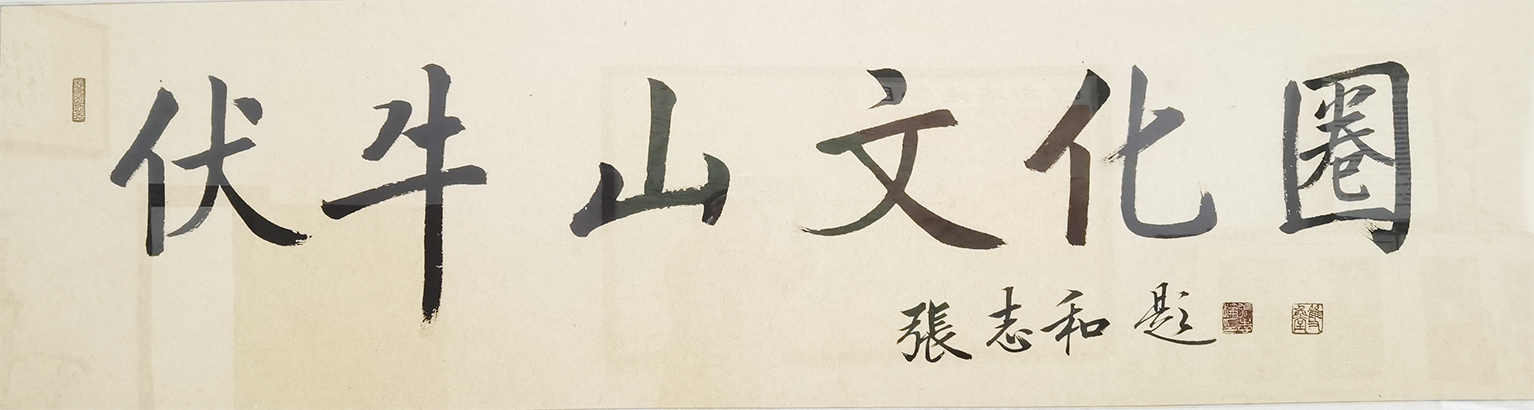 伏牛山文化圈
張志和題